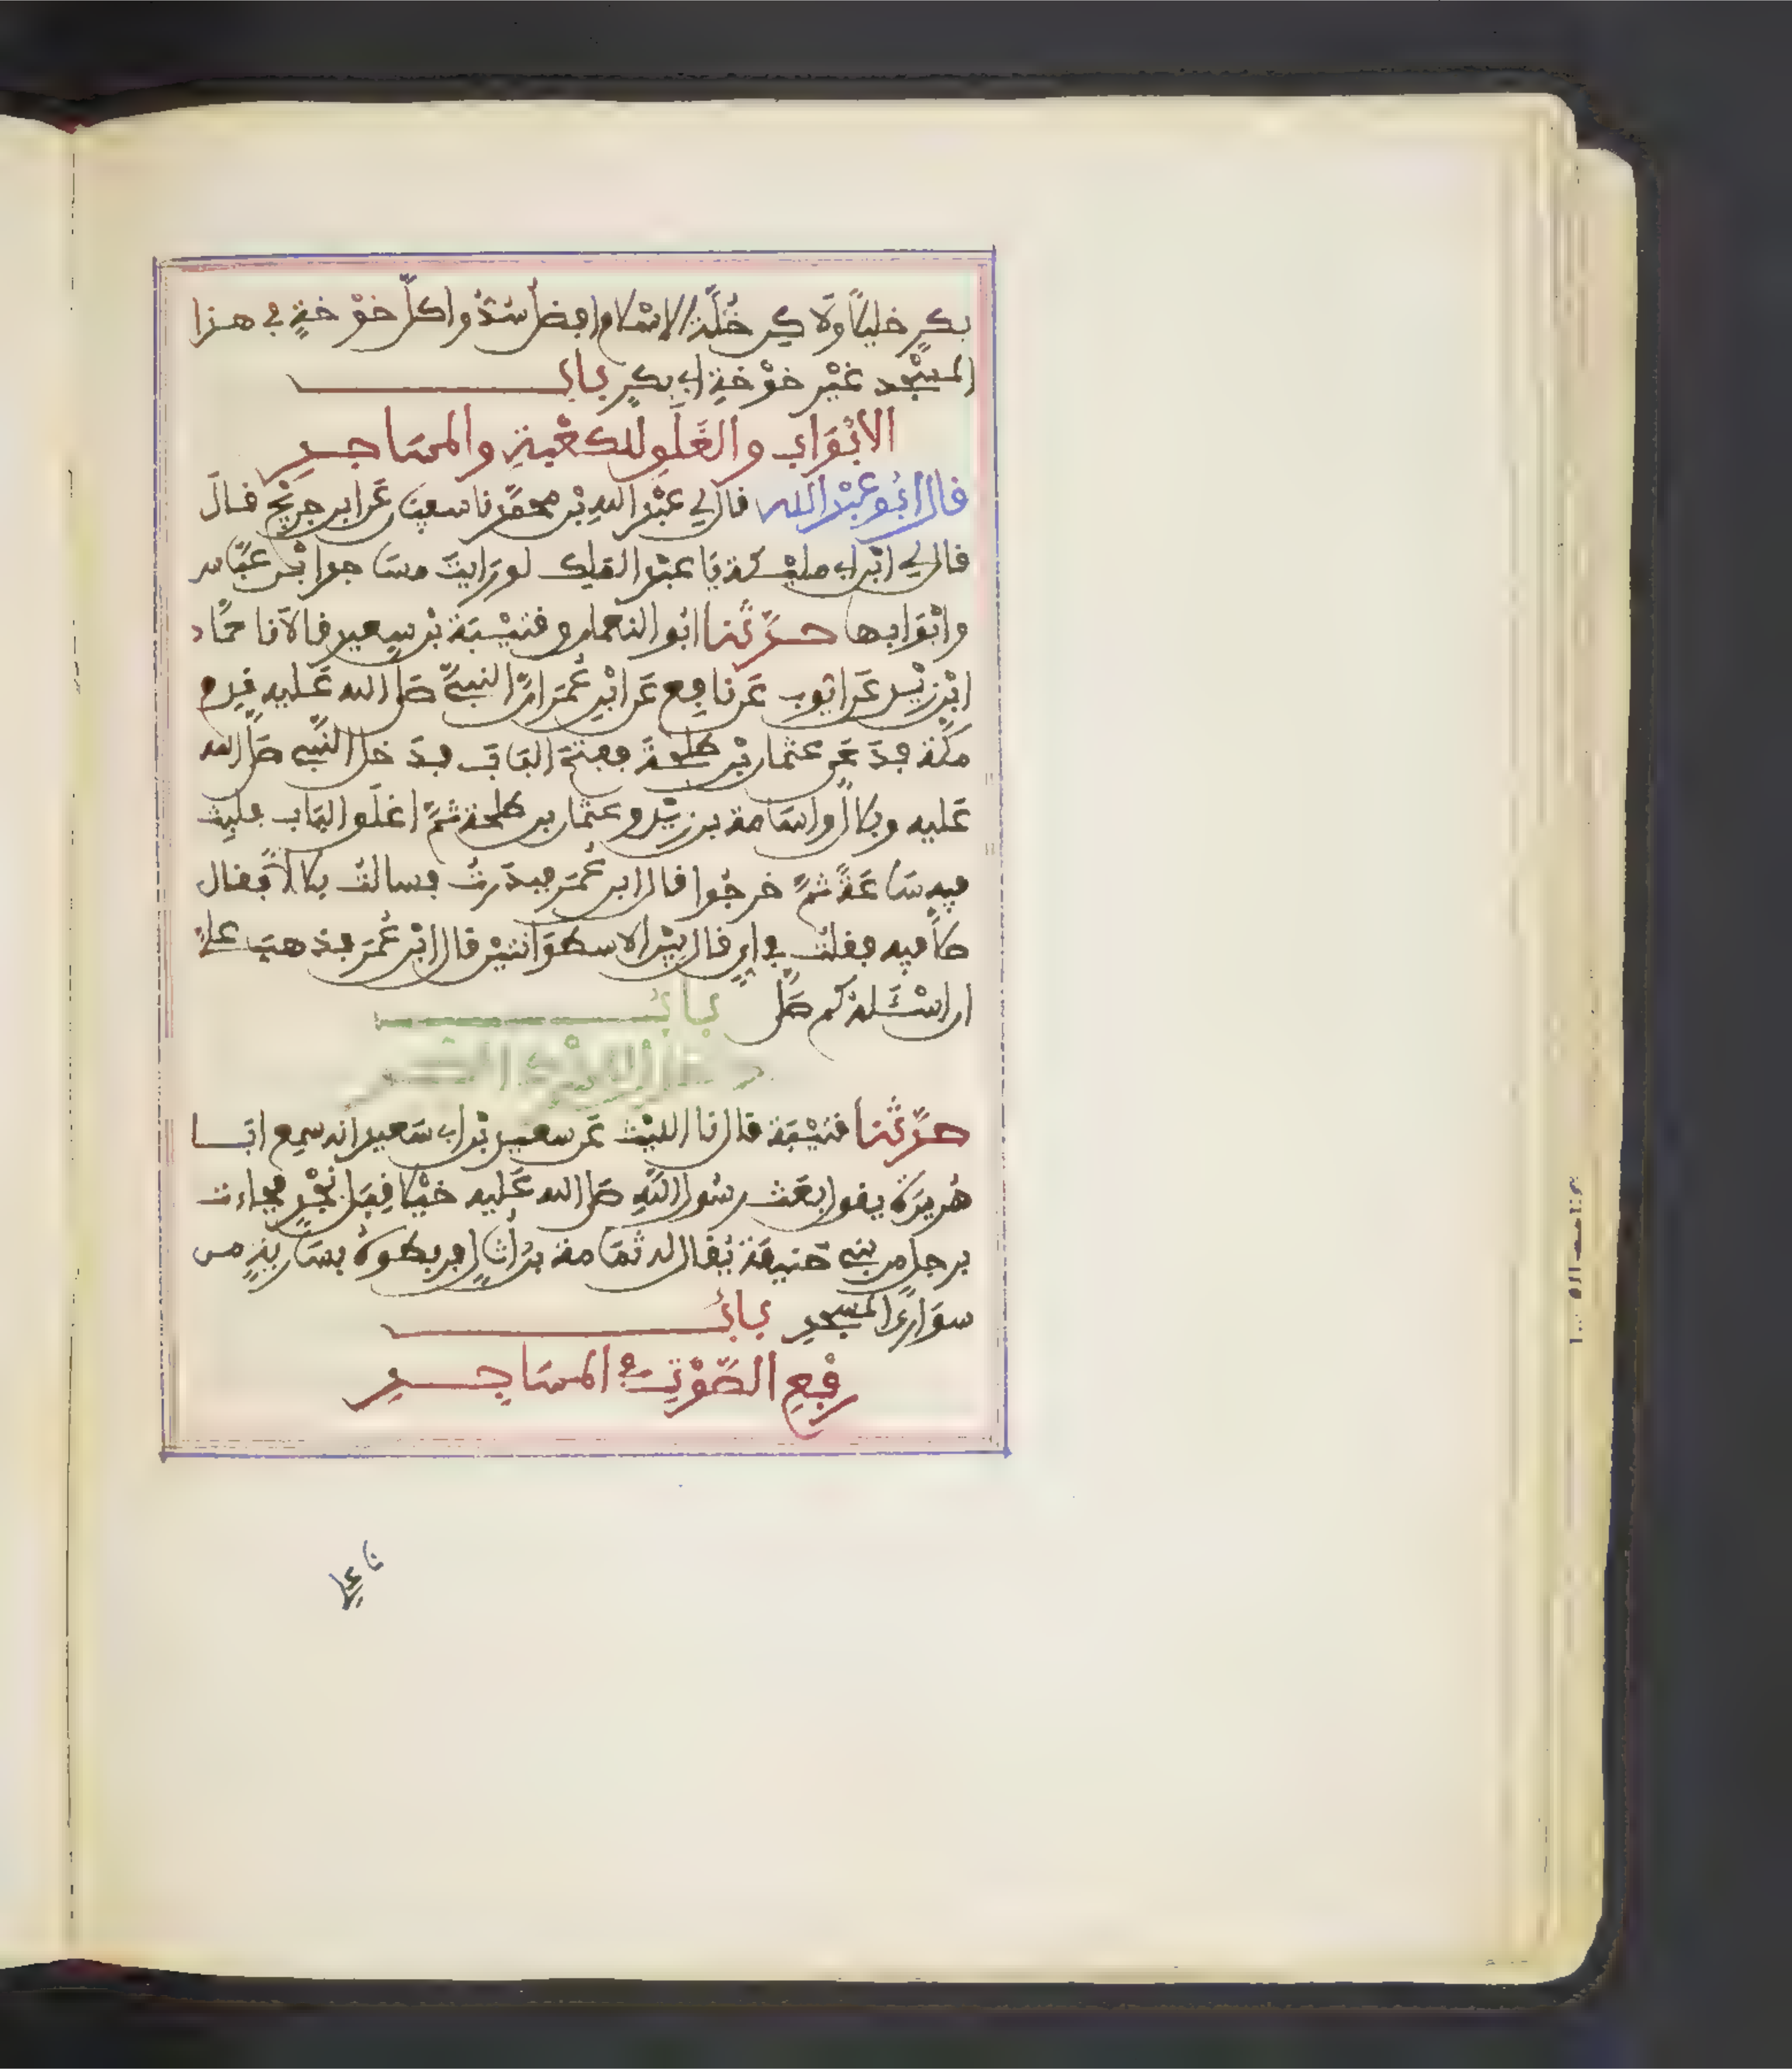 بكرٍ خليلًا ولاكن خُلّة الاسلام افضل سُدّوا كلّ خَوْخةٍ في هذا
المسْجد غيْر خوْخةِ ابي بكرٍ بابُ
الابْوَابِ والغَلَقِ للكعْبةِ والمسَاجدِ
قال ابُو عبْد الله قال لي عبْد اللهِ بْن محمّد نا سفيٰن عَن ابن جريْج قال
قال لي ابْن ابي مليْكة يَا عبْد الملك لو رَايتَ مسَاجد ابْن عبّاس
وابْوَابها حدّثنا ابُو النعمان وقتيْبَة بْن سعيد قالا نا حمّاد
ابْن زيْد عَن ايوب عَن نافع عَن ابْن عُمَر انّ النبيّ صلى الله عَليه قدم
مكّة فدَعَى عثمان بْن طلحةَ ففتحَ البَابَ فدَخل النّبي صلّى الله
عَليه وبلال واسَامة بن زيْد وعثمان بن طلحة ثمّ اغلَق البَاب فلبِث
فيه سَاعَةً ثمّ خرجُوا قال ابن عُمَر فبدَرتُ فسالتُ بلالًا فقال
صلّى فيه فقلتُ في ايٍ قال بيْن الاسطوَانتيْن قال ابْن عُمَر فذهبَ عليّ
ان اسْئَله كم صَلّى بابُ
حدّثنا قتيْبَة قال نا الليْث عَن سعيد بْن ابي سَعيد انه سمع ابَا
هُريرَة يقول بعَث رسُول اللهِ صلى الله عَليه خيْلًا قِبَل نجْدٍ فجاءت
برجل من بني حَنيفَة يُقال له ثمَامة بن أُثالٍ فربطوهُ بسَاريةٍ من
سوَاري المسْجدِ بابُ
رفْعِ الصّوْتِ في المسَاجدِ